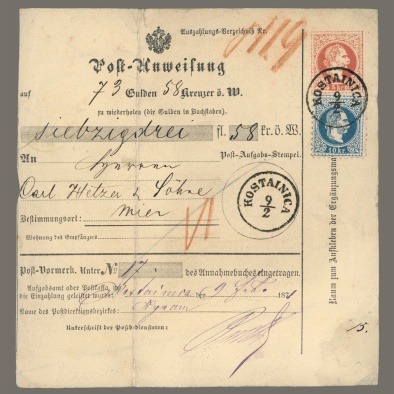 Auszahlungs-Verzeichniß Nr.
Post-Anweisung
auf 73 Gulden 58 Kreuzer ö. W.
zu wiederholen (die Gulden in Buchstaben).
siebzigdrei fl. 58 kr. ö. W.
An Herren
Post-Aufgabs-Stempel.
Carl Hetzer & Söhne
Bestimmungsort: Wien
Wohnung des Empfängers:
VI
KOSTAINICA
9/2
KOSTAINICA
9/2
10 kr.
Post-Vormerk. Unter No 17. des Annahmebuches eingetragen.
Aufgabsamt oder Postkassa, wo die Einzahlung geleistet wurde: Kostainica 9 Feb. 187
Name des Postdirektionsbezirkes: Agram
Unterschrift der Postbediensteten:
Raum zum Aufkleben der Ergänzungsmarken
15.